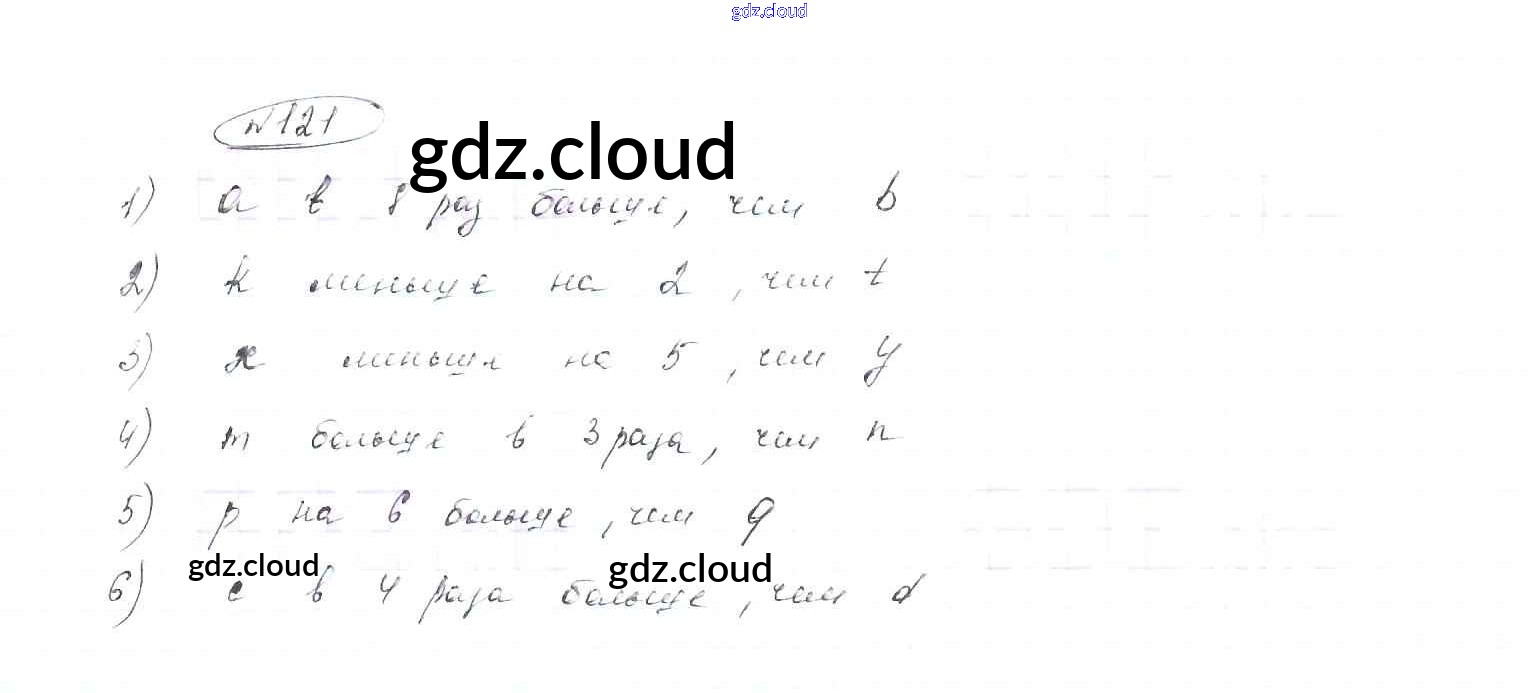 gdz.cloud
№121
gdz.cloud
1) a в 8 раз больше, чем b
2) k меньше на 2, чем t
3) x меньше на 5, чем y
4) m больше в 3 раза, чем n
5) p на 6 больше, чем q
gdz.cloud gdz.cloud
6) c в 4 раза больше, чем d